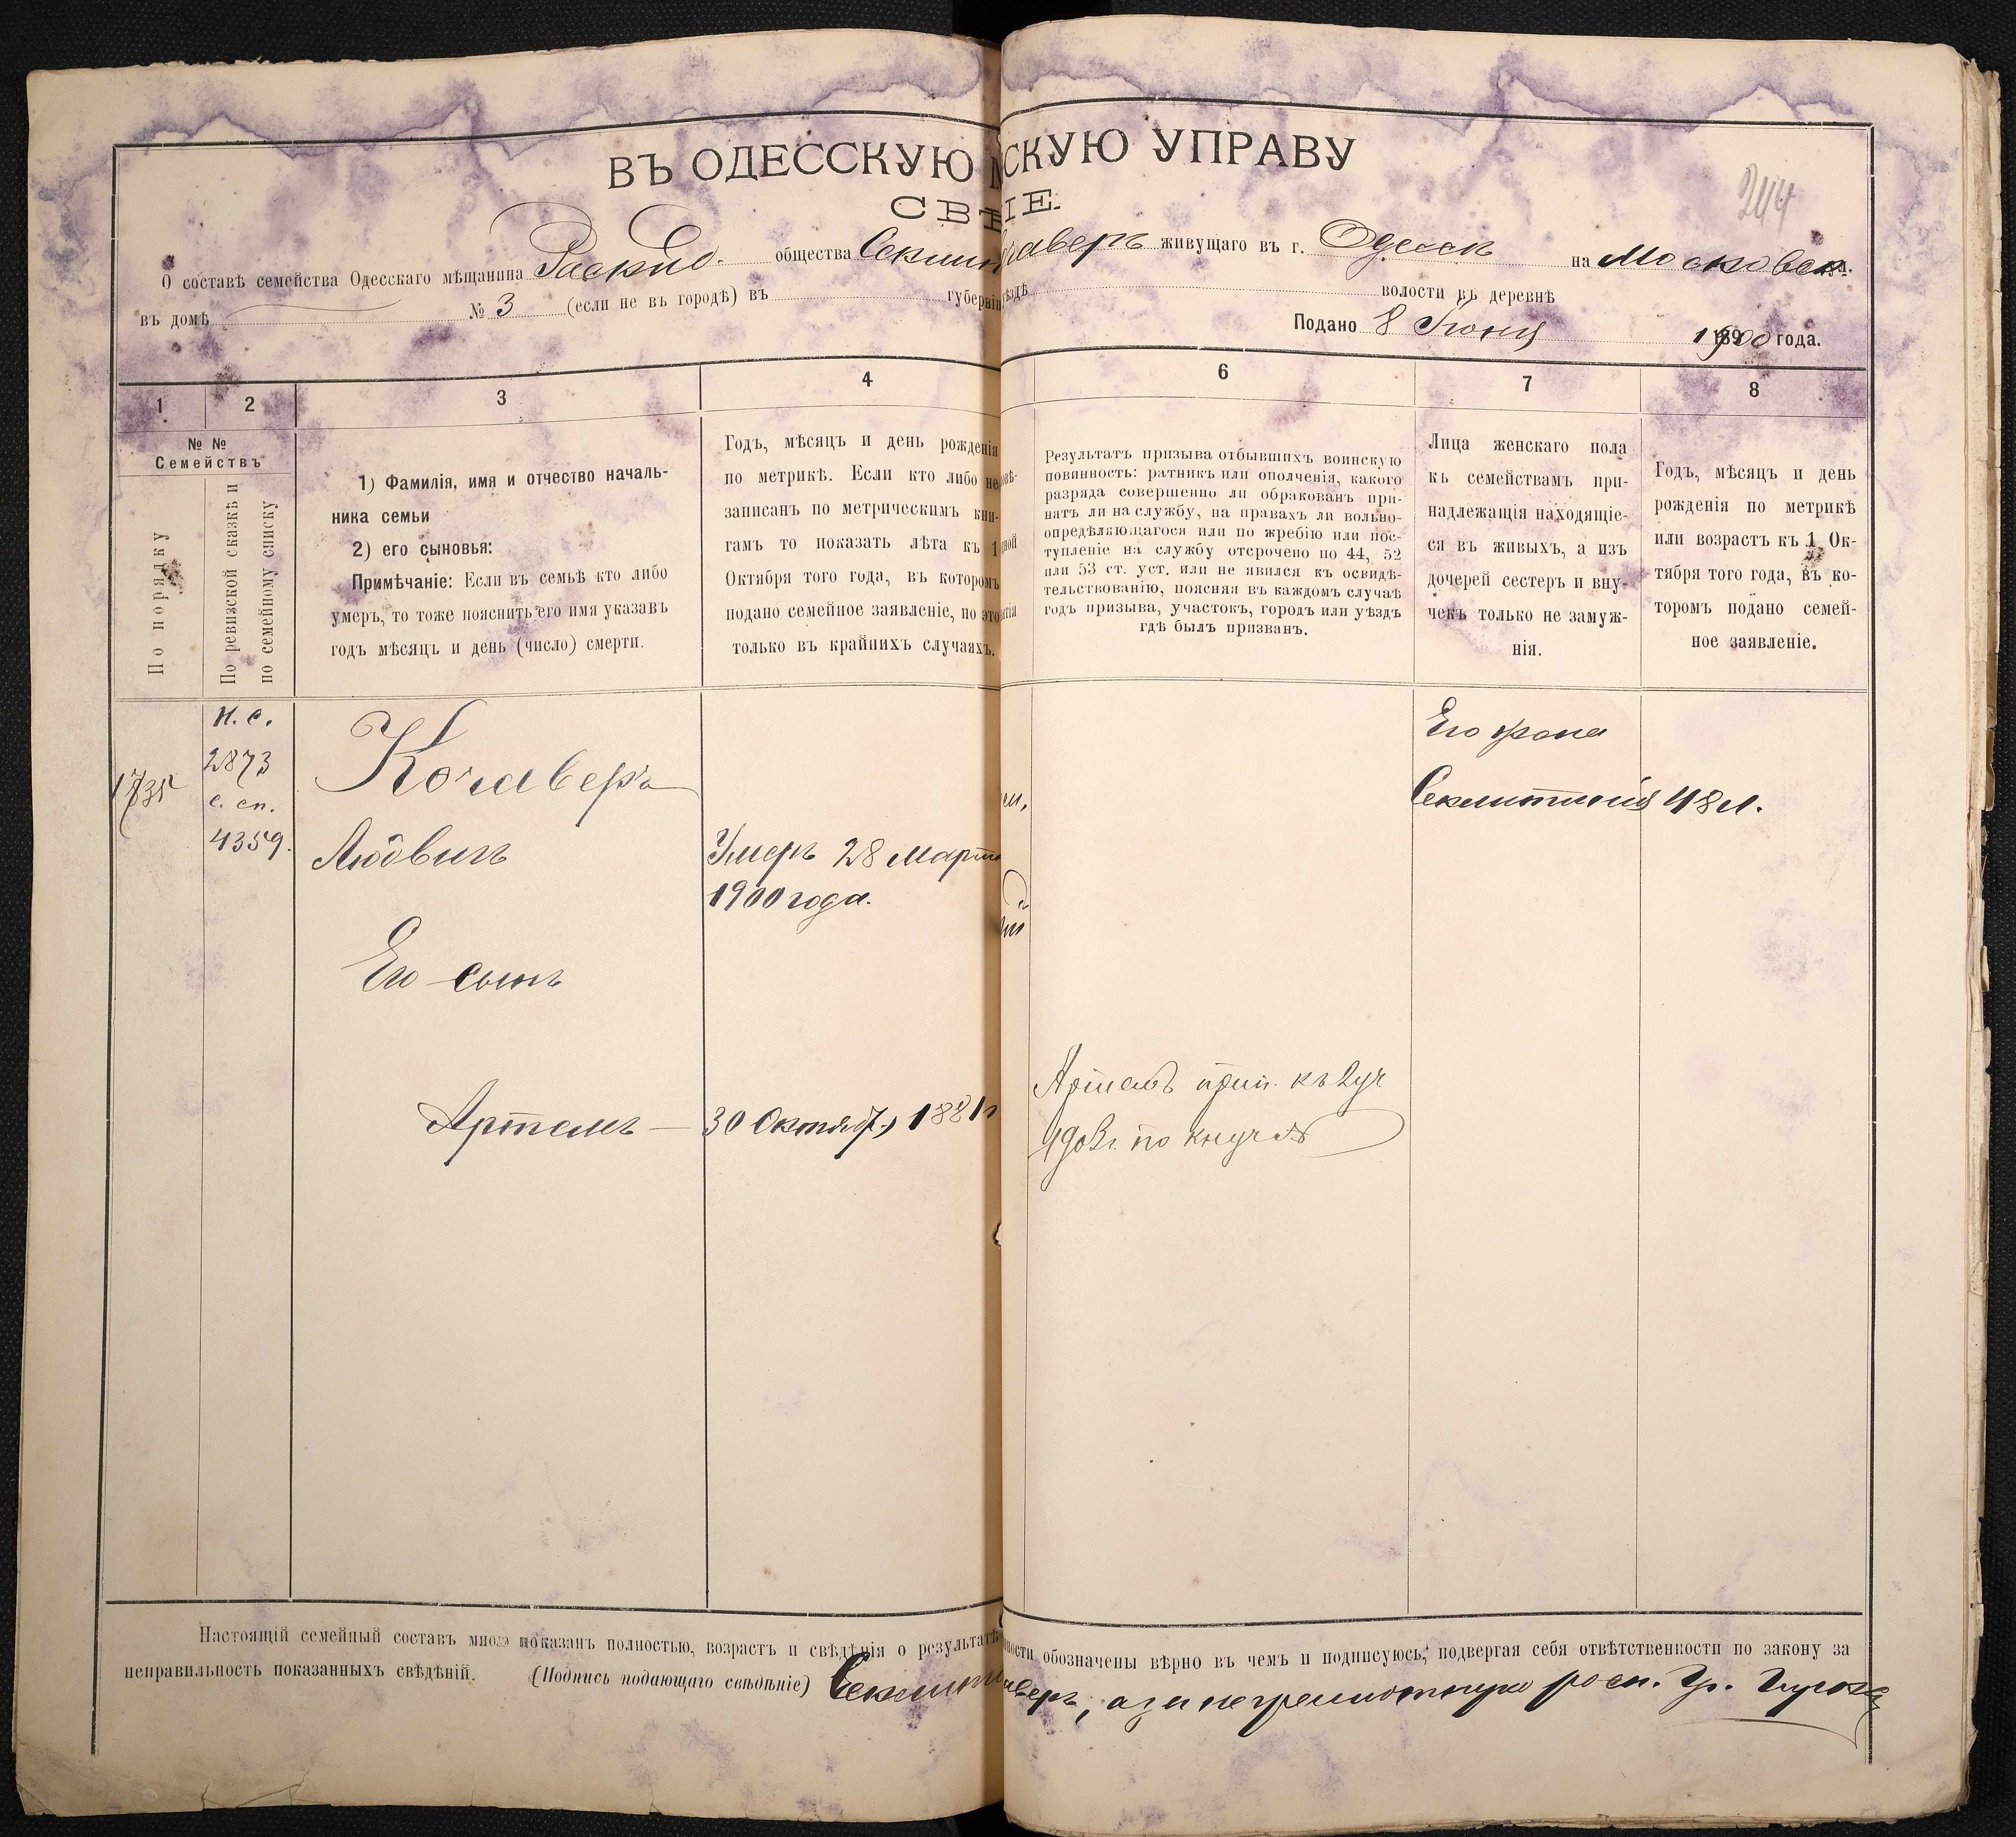 244
ВЪ ОДЕССКУЮ М СКУЮ УПРАВУ
СВѢ IE.
О составѣ семейства Одесскаго мѣщанина Раскид. общества живущаго въ г. Одессѣ на Московск ул.
въ домѣ № 3 (если не въ городѣ) въ губерніи уѣздѣ волости въ деревнѣ
Подано 8 Іюня 1900 года.
1 2 3 4 6 7 8
№ №
Семействъ
По порядку
По ревизской сказкѣ и
по семейному списку
1) Фамилія, имя и отчество началь-
ника семьи
2) его сыновья:
Примѣчаніе: Если въ семьѣ кто либо
умеръ, то тоже пояснить его имя указавъ
годъ мѣсяцъ и день (число) смерти.
Годъ, мѣсяцъ и день рожденія
по метрикѣ. Если кто либо не
записанъ по метрическимъ кни-
гамъ то показать лѣта къ 1
Октября того года, въ которомъ
подано семейное заявленіе, но это
только въ крайнихъ случаяхъ.
Результатъ призыва отбывшихъ воинскую
повинность: ратникъ или ополченія, какого
разряда совершенно ли обракованъ при-
нятъ ли на службу, на правахъ ли вольно-
опредѣляющагося или по жребію или пос-
тупленіе на службу отсрочено по 44, 52
или 53 ст. уст. или не явился къ освидѣ-
тельствованію, поясняя въ каждомъ случаѣ
годъ призыва, участокъ, городъ или уѣздъ
гдѣ былъ призванъ.
Лица женскаго пола
къ семействамъ при-
надлежащія находящіе-
ся въ живыхъ, а изъ
дочерей сестеръ и вну-
чекъ только не замуж-
нія.
Годъ, мѣсяцъ и день
рожденія по метрикѣ
или возрастъ къ 1 Ок-
тября того года, въ ко-
торомъ подано семей-
ное заявленіе.
1735
н. с.
2873
с. сп.
4359.
Кочаверъ
Людвигъ
Умеръ 28 Марта
1900 года.
Его сынъ
Артемъ — 30 Октяб. 1881г
Артемъ прип. къ 2 уч
1903г. по
Его жена
Секлитинія 48 л.
Настоящій семейный составъ мною показанъ полностью, возрастъ и свѣдѣнія о результатѣ ности обозначены вѣрно въ чемъ и подписуюсь, подвергая себя отвѣтственности по закону за
неправильность показанныхъ свѣдѣній. (Подпись подающаго свѣдѣніе) Секлит аверъ, а за неграмотную росп. Гр.